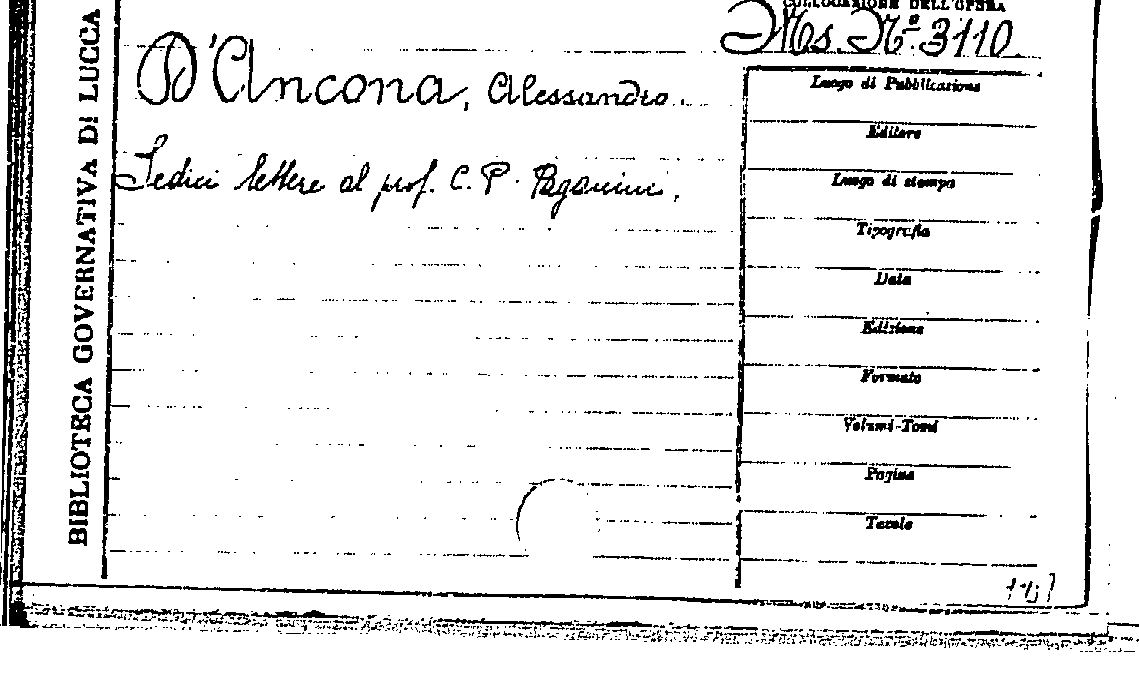 BIBLIOTECA GOVERNATIVA DI LUCCA
COLLOCAZIONE DELL'OPERA
Ms. Nº 3110.
D'Ancona, Alessandro.
Sedici lettere al prof. C. P. Paganini.
Luogo di Pubblicazione
Editore
Luogo di stampa
Tipografia
Data
Edizione
Formato
Volumi-Tomi
Pagine
Tavole